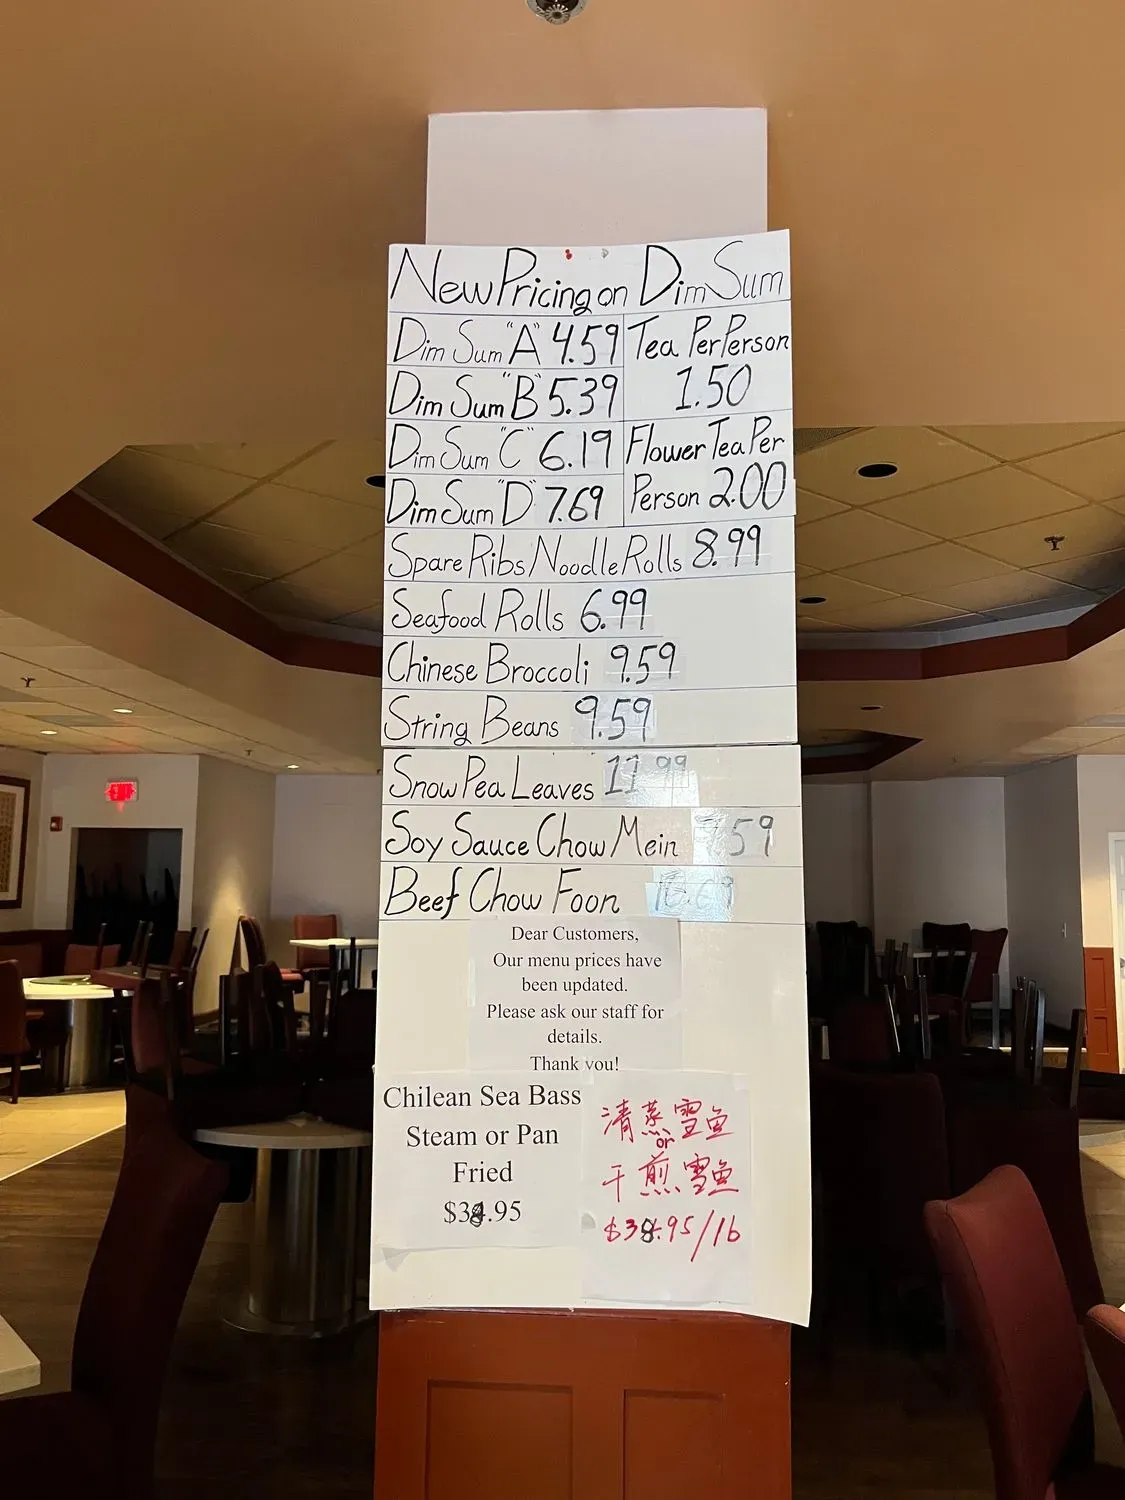 New Pricing on Dim Sum
Dim Sum "A" 4.59
Dim Sum "B" 5.39
Dim Sum "C" 6.19
Dim Sum "D" 7.69
Tea Per Person
1.50
Flower Tea Per
Person 2.00
Spare Ribs/Noodle Rolls 8.99
Seafood Rolls 6.99
Chinese Broccoli 9.59
String Beans 9.59
Snow Pea Leaves 11.99
Soy Sauce Chow Mein
Beef Chow Foon
Dear Customers,
Our menu prices have
been updated.
Please ask our staff for
details.
Thank you!
Chilean Sea Bass
Steam or Pan
Fried
$38.95
清蒸雪鱼
or
干煎雪鱼
$38.95/lb